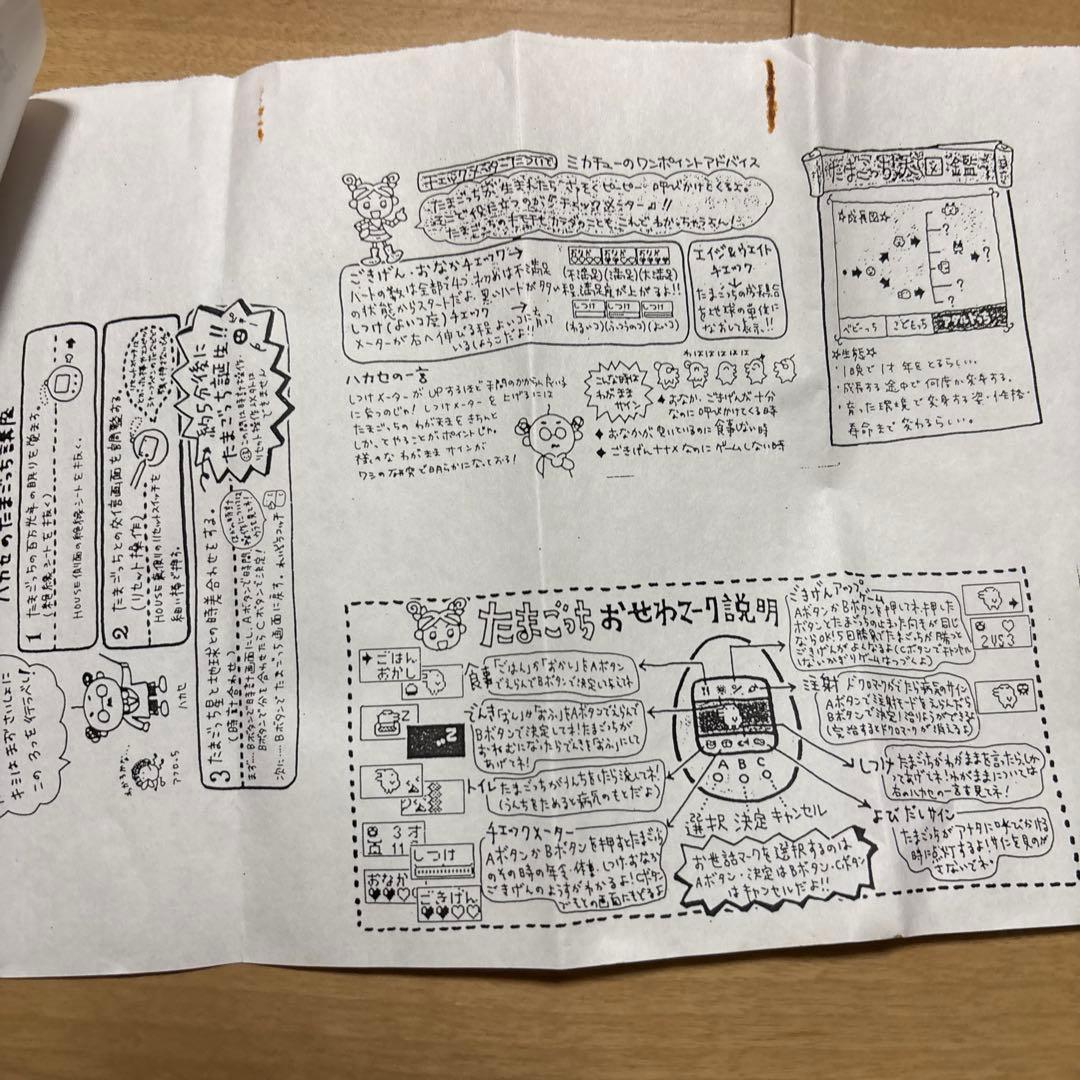 チェックメーターについて
ミカチューのワンポイントアドバイス
たまごっちが生まれたら さっそくピーピー呼びかけてくるよ。
そこで役に立つのがチェックメーター!!
ごきげん・おなかチェック→
ハートの数は全部で4つ。初めは不満足
の状態からスタートだよ。黒いハートが多い
程、満足度が上がるよ!!
しつけ(よいコ度)チェック→
メーターが右へ伸びる程よいコに育て
いるしょうこだよ!!
おなか おなか おなか
(不満足)(満足)(大満足)
しつけ しつけ しつけ
(わるいコ)(ふつうのコ)(よいコ)
エイジ&ウエイト
チェック
たまごっちの成長具合
を地球の単位に
なおして表示!!
ハカセの一言
しつけメーターがUPするほど手間のかからん良いコ
に育つのじゃ!しつけメーターを上げるには
たまごっちのわがままをきちんと
しかってやることがポイントじゃ。
様々なわがままサインが
ワシの研究で明らかになっておる!
こんな時は
わがまま
サイン
わははははは
◆おなか、ごきげんが十分
なのに呼びかけてくる時
◆おなかが空いているのに食事しない時
◆ごきげんナナメなのにゲームしない時
たまごっち図鑑
☆成長図☆
?
?
?
?
ベビーっち
こどもっち
☆生態☆
・1日で1才年をとるらしい。
・成長する途中で何度か変身する。
・育った環境で変身する姿・性格・
寿命まで変わるらしい。
ハカセのたまごっち講座
1 たまごっちの百万光年の眠りを覚ます。
(絶縁シートを抜く)
HOUSE側面の絶縁シートを抜く。
2 たまごっちとの交信画面を調整する。
(リセット操作)
HOUSE裏側のリセットスイッチを
細い棒で押す。
約5分後に
たまごっち誕生!!
3 たまごっち星と地球との時差合わせをする。
(時計合わせ)
まず…Bボタンで時計画面にし、Aボタンで時間
Bボタンで分を合わせたらCボタンで決定!
次に…Bボタンでたまごっち画面に戻す。
ハカセ
アフロっち
キミはまずさいしょに
この3つを行うべし!
たまごっち おせわマーク説明
→ごはん
おかし
食事 「ごはん」か「おかし」をAボタン
でえらんでBボタンで決定してネ
でんき 「つける」か「おふ」をAボタンでえらんで
Bボタンで決定してネ!たまごっちが
おねむになったらでんきを「おふ」にして
あげてネ!
トイレ たまごっちがうんちをしたら流してネ!
(うんちをためると病気のもとだよ)
チェックメーター
AボタンかBボタンを押すとたまごっち
のその時の年令・体重・しつけ・おなか
ごきげんのようすがわかるよ!Cボタン
でもとの画面にもどるよ
3オ
11
しつけ
おなか
ごきげん
A B C
選択 決定 キャンセル
お世話マークを選択するのは
Aボタン・決定はBボタン・Cボタン
はキャンセルだよ!!
ごきげんアップゲーム
AボタンかBボタンを押してネ。押した
ボタンとたまごっちのむいた向きが同じ
ならOK!5回勝負でたまごっちが勝つと
ごきげんがよくなるよ(Cボタンでキャンセル
しないかぎりゲームはつづくよ)
2VS3
注射 ドクロマークがでたら病気のサイン
Aボタンで注射モードをえらんだら
Bボタンで決定!治りょうができるよ
(完治するとドクロマークが消えるよ)
しつけ たまごっちがわがままを言ったらしか
ってあげてネ!わがままについては
右のハカセの一言を見てネ!
よびだしサイン
たまごっちがアナタに呼びかける
時に点灯するよ!サインを見のが
さないでネ!